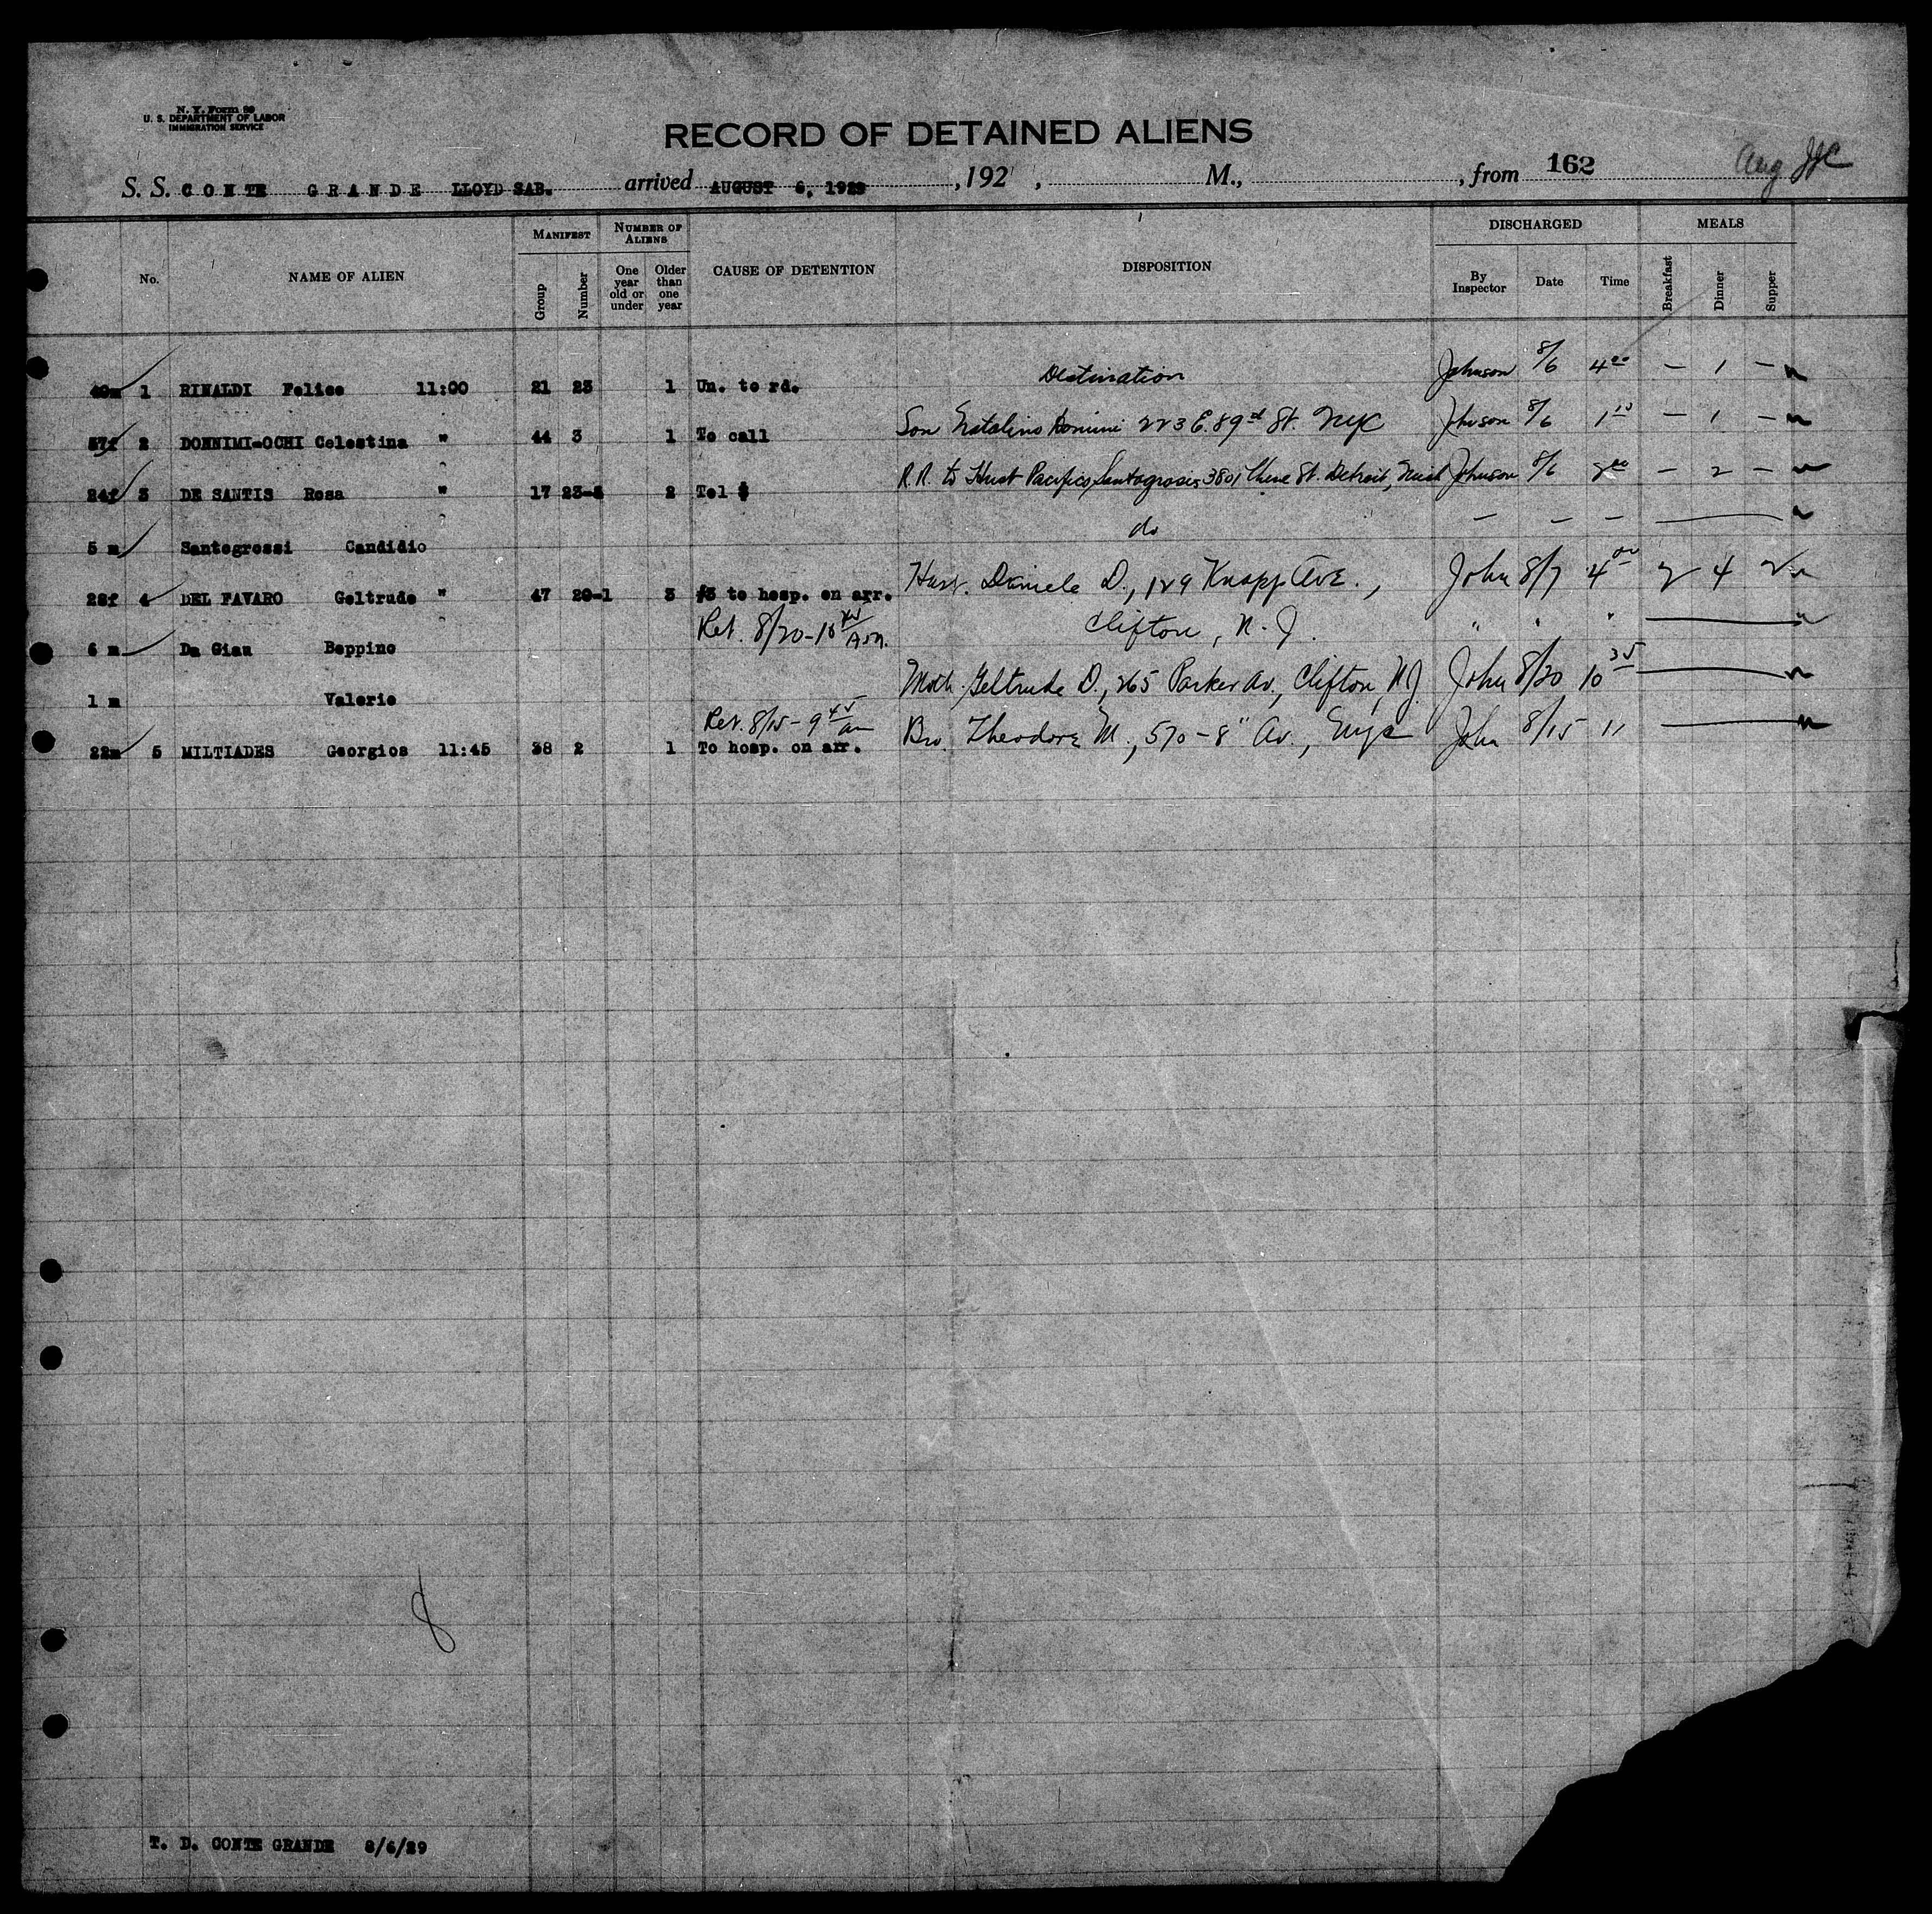 N. Y. Form 99
U. S. DEPARTMENT OF LABOR
IMMIGRATION SERVICE
RECORD OF DETAINED ALIENS
S. S. CONTE GRANDE LLOYD SAB. arrived AUGUST 6, 1929 , 192 , M., , from 162 Aug
No. NAME OF ALIEN MANIFEST Group Number NUMBER OF ALIENS One year old or under Older than one year CAUSE OF DETENTION DISPOSITION DISCHARGED By Inspector Date Time MEALS Breakfast Dinner Supper
1 RINALDI Felice 11:00 21 23 1 Un. to rd. Destination Johnson 8/6 4 00 — 1 —
2 DONNIMI-OCHI Celestina " 44 3 1 To call Son Donimi 223 E. 89 St. NYC Johnson 8/6 1 — 1 —
24f 3 DE SANTIS Rosa " 17 23-2 Tel $ R.R. to Hust Pacifico 3801 St. Detroit, Mich Johnson 8/6 — 2 —
5 m Santegrossi Candidio do — — —
28f 4 DEL FAVARO Geltrude " 47 20-1 3 #3 to hosp. on arr. Hus. Daniele D., 129 Knapp Ave., John 8/7 4 00 2 4 2
Ret. 8/20-10 45 AM. Clifton, N.J. " " "
6 m Da Gian Beppino
1 m Valerio Moth. Geltrude D., 265 Parker Av., Clifton, NJ John 8/20 10 35
Ret. 8/15-9 45 am
22m 5 MILTIADES Georgios 11:45 38 2 1 To hosp. on arr. Bro. Theodore M., 570-8" Av., NYC John 8/15 11
8
T. D. CONTE GRANDE 8/6/29